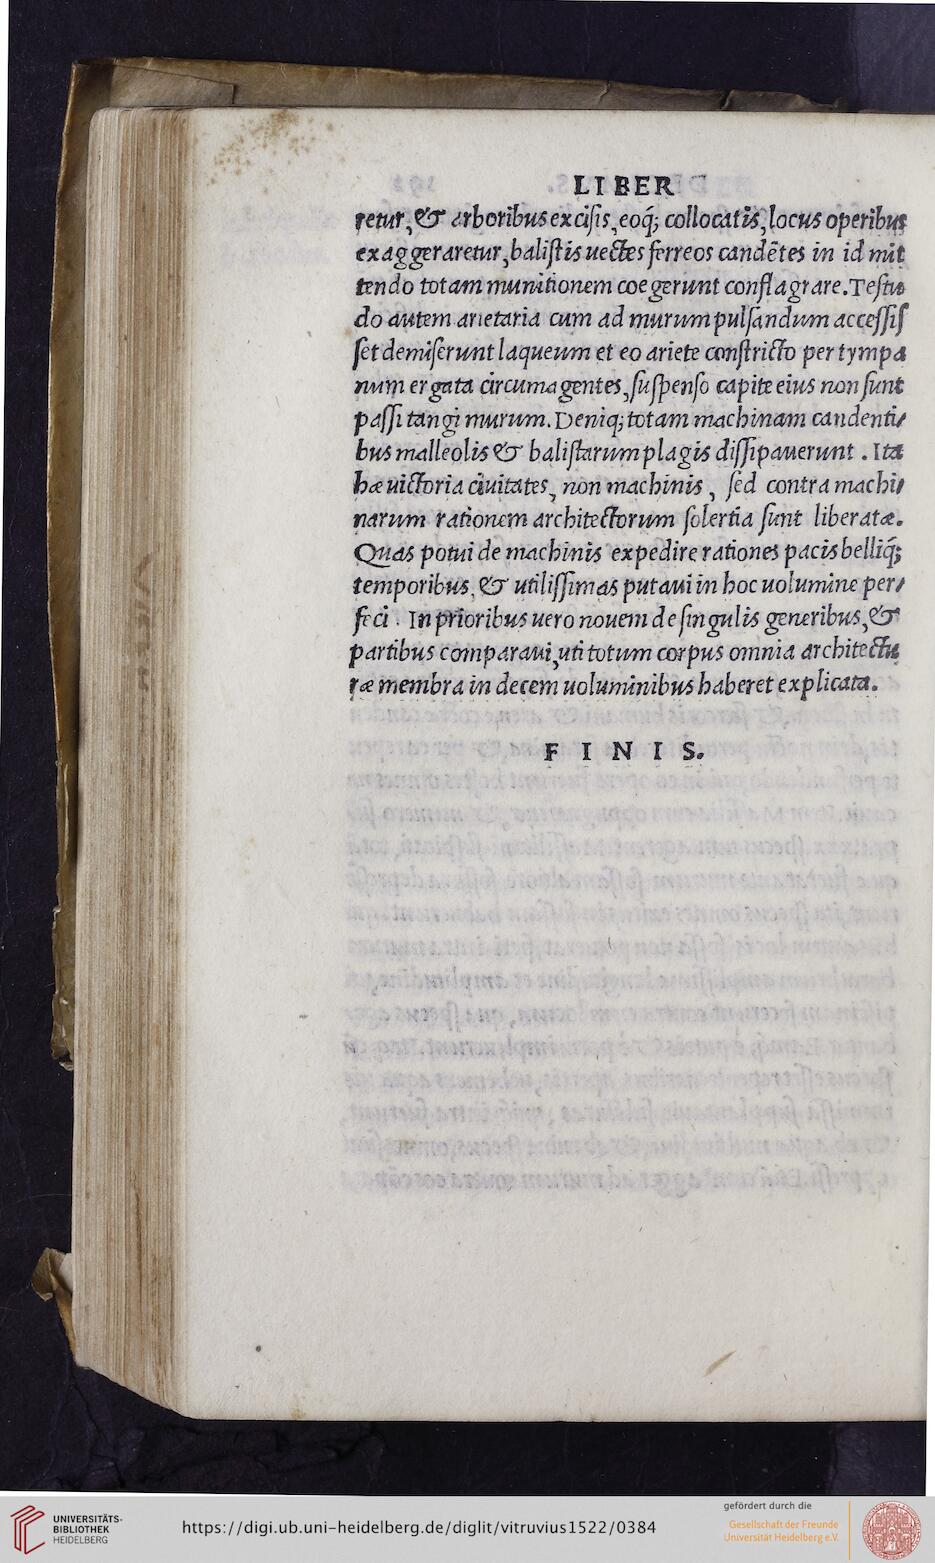 LIBER
retur, & arboribus excisis, eoq; collocatis, locus operibus
exaggeraretur, balistis uectes ferreos candẽtes in id mit
tendo totam munitionem coegerunt conflagrare. Testu
do autem arietaria cum ad murum pulsandum accessis
set demiserunt laqueum et eo ariete constricto per tympa
num ergata circumagentes, suspenso capite eius non sunt
passi tangi murum. Deniq; totam machinam candenti-
bus malleolis & balistarum plagis dissipauerunt. Ita
hæ uictoria ciuitates, non machinis, sed contra machi-
narum rationem architectorum solertia sunt liberatæ.
Quas potui de machinis expedire rationes pacis belliq́;
temporibus, & utilissimas putaui in hoc uolumine per-
feci. In prioribus uero nouem de singulis generibus, &
partibus comparaui, uti totum corpus omnia architectu
ræ membra in decem uoluminibus haberet explicata.
FINIS.
UNIVERSITÄTS-
BIBLIOTHEK
HEIDELBERG
https://digi.ub.uni-heidelberg.de/diglit/vitruvius1522/0384
gefördert durch die
Gesellschaft der Freunde
Universität Heidelberg e.V.